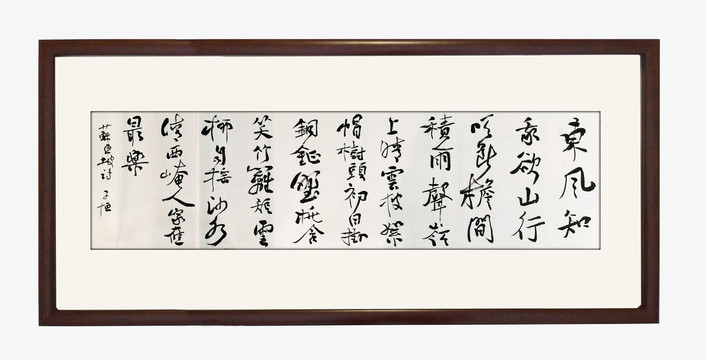 東風知
我欲山行
吹斷檐間
積雨聲嶺
上晴雲披絮
帽樹頭初日掛
銅鉦野桃含
笑竹籬短
柳自搖沙水
清西崦人家應
最樂
蘇東坡詩 子恒